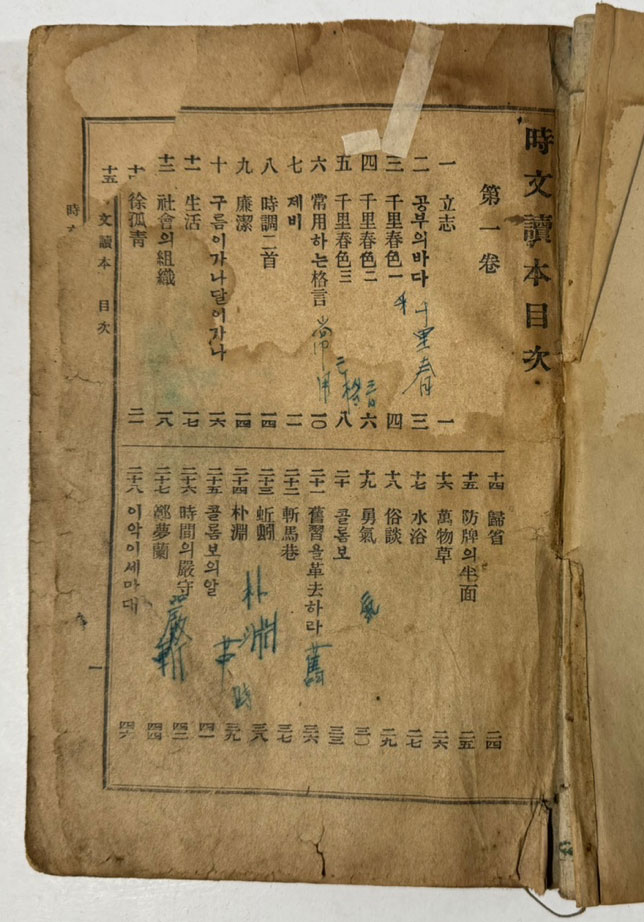 時文讀本目次
第一卷
一 立志 一
二 공부의바다 三
三 千里春色一 四
四 千里春色二 六
五 千里春色三 八
六 常用하는格言 一〇
七 제비 一一
八 時調二首 一四
九 廉潔 一四
十 구름이가나달이가나 一六
十一 生活 一七
十二 社會의組織 一八
徐孤青 二一
十五
文讀本 目次
時
千里春
常用
格言
十四 歸省 二四
十五 防牌의半面 二五
十六 萬物草 二六
十七 水浴 二七
十八 俗談 二九
十九 勇氣 三〇
二十 콜롬보 三三
二十一 舊習을革去하라 三六
二十二 斬馬巷 三七
二十三 蚯蚓 三八
二十四 朴淵 三九
二十五 콜롬보의알 四一
二十六 時間의嚴守 四二
二十七 鄭夢蘭 四四
二十八 이악이세마대 四六
氣
舊
朴淵
嚴
一